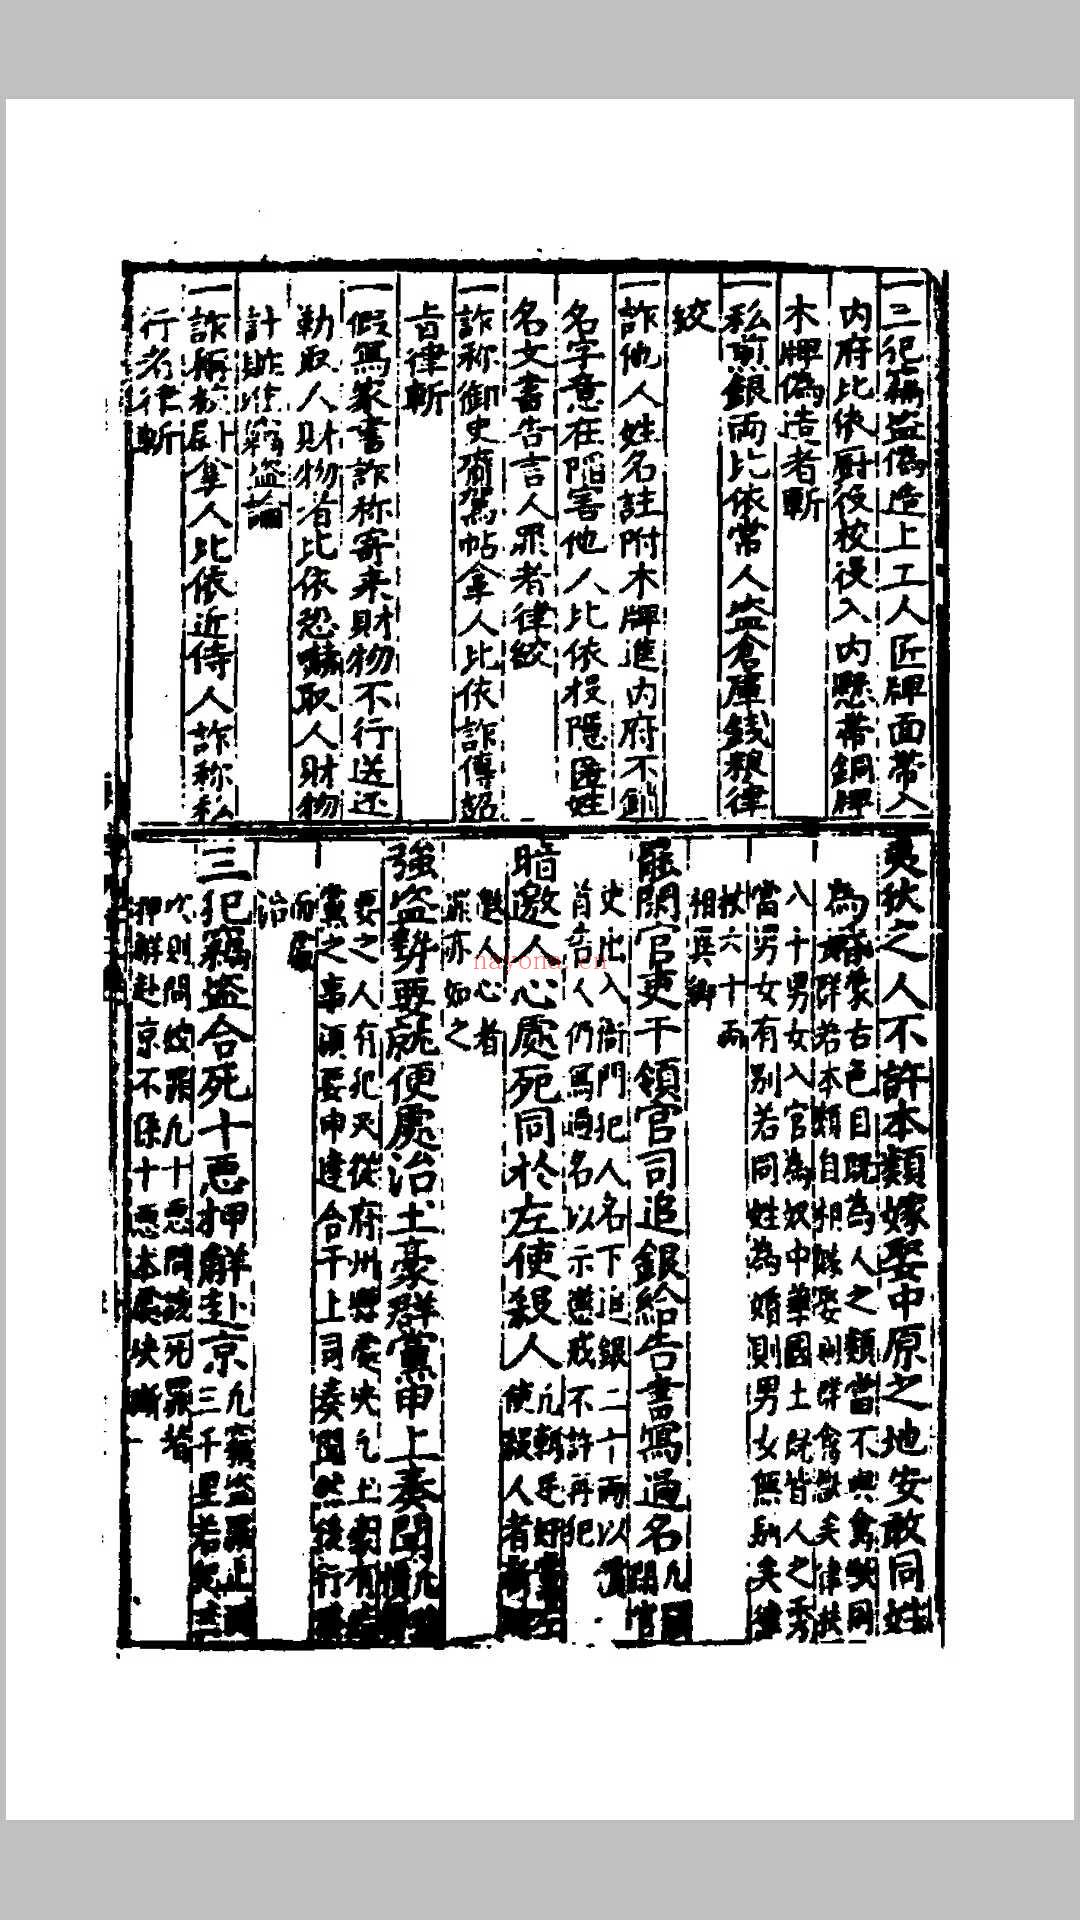 一三犯竊盜偽造上工人匠牌面帶入
內府比依厨役校役入內懸帶銅牌
木牌偽造者斬
一私煎銀両比依常人盗倉庫錢粮律
絞
一詐他人姓名註附木牌進內府不銷
名字意在陷害他人比依投隱匿姓
名文書告言人罪者律絞
一詐称御史賫駕帖拿人比依詐傳詔
旨律斬
一假寫家書詐称寄来財物不行送还
勒取人財物者比依恐嚇取人財物
計賍准竊盗論
一詐稱校尉隼人比依近侍人詐称私
行者律斬
夷狄之人不許本類嫁娶中原之地安敢同姓
為婚蒙古色目既為人之類當不與禽獸同
女群若本類自相嫁娶則群禽獸矣律扶
八十男女入官為奴中華國土既皆人之秀
當男女有別若同姓為婚則男女無別矣律
杖六十両
相兵
罷閑官吏干領官司追銀給告書寫過名凡
閑官
吏出入衙門犯人名下追銀二十両以賞
首告人仍寫過名以示懲戒不許再犯
暗邀人心處死同於左使殺人凡
使殺人者
邀人心者
罪亦如之
強盗勢要就便處治土豪群黨申上奏聞凡
要之人有犯天從府州縣處決凡土有
黨之事須要申達合干上司奏聞然後行
而
治
三犯竊盗合死十悪押解赴京凡竊盗罪止
三千里若
次則問絞罪凡十悪問該死罪者
押解赴京不係十悪本處決斷
nayona.cn